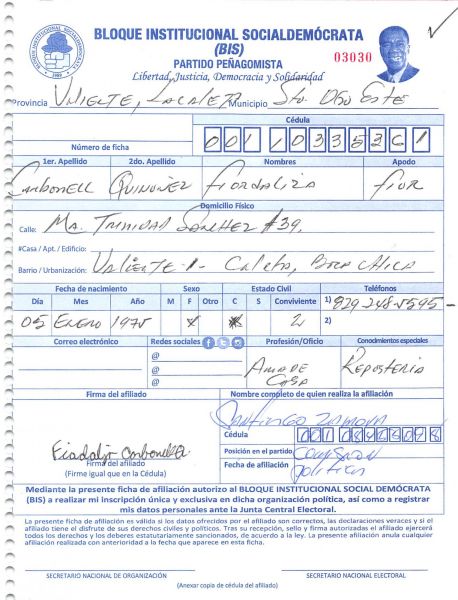 BLOQUE INSTITUCIONAL SOCIALDEMÓCRATA
(BIS)
PARTIDO PEÑAGOMISTA
03030
Libertad, Justicia, Democracia y Solidaridad
Provincia Valiente, La Caleta Municipio Sto. Dgo Este
Cédula
Número de ficha 001 1033526 1
1er. Apellido 2do. Apellido Nombres Apodo
Carbonell Quiñonez Fiordaliza Fior
Domicilio Físico
Calle: Ma. Trinidad Sanchez #39,
#Casa / Apt. / Edificio:
Barrio / Urbanización: Valiente - Caleta, Boca Chica
Fecha de nacimiento Sexo Estado Civil Teléfonos
Día Mes Año M F Otro C S Conviviente 1) 829-248-5595-
05 Enero 1975 x x 2 2)
Correo electrónico Redes sociales Profesión/Oficio Conocimientos especiales
@
@
@
Ama de Casa Reposteria
Firma del afiliado Nombre completo de quien realiza la afiliación
Santiago Zamora
Cédula 001
Posición en el partido Comision
Politica
Fecha de afiliación
Carbonell Q
Firma del afiliado
(Firme igual que en la Cédula)
Mediante la presente ficha de afiliación autorizo al BLOQUE INSTITUCIONAL SOCIAL DEMÓCRATA
(BIS) a realizar mi inscripción única y exclusiva en dicha organización política, así como a registrar
mis datos personales ante la Junta Central Electoral.
La presente ficha de afiliación es válida si los datos ofrecidos por el afiliado son correctos, las declaraciones veraces y si el
afiliado tiene el disfrute de sus derechos civiles y políticos. Tras su recepción, sello y firma autorizadas el afiliado ejercerá
todos los derechos y los deberes estatutariamente sancionados, de acuerdo a la ley. La presente afiliación anula cualquier
afiliación realizada con anterioridad a la fecha que aparece en esta ficha.
SECRETARIO NACIONAL DE ORGANIZACIÓN SECRETARIO NACIONAL ELECTORAL
(Anexar copia de cédula del afiliado)